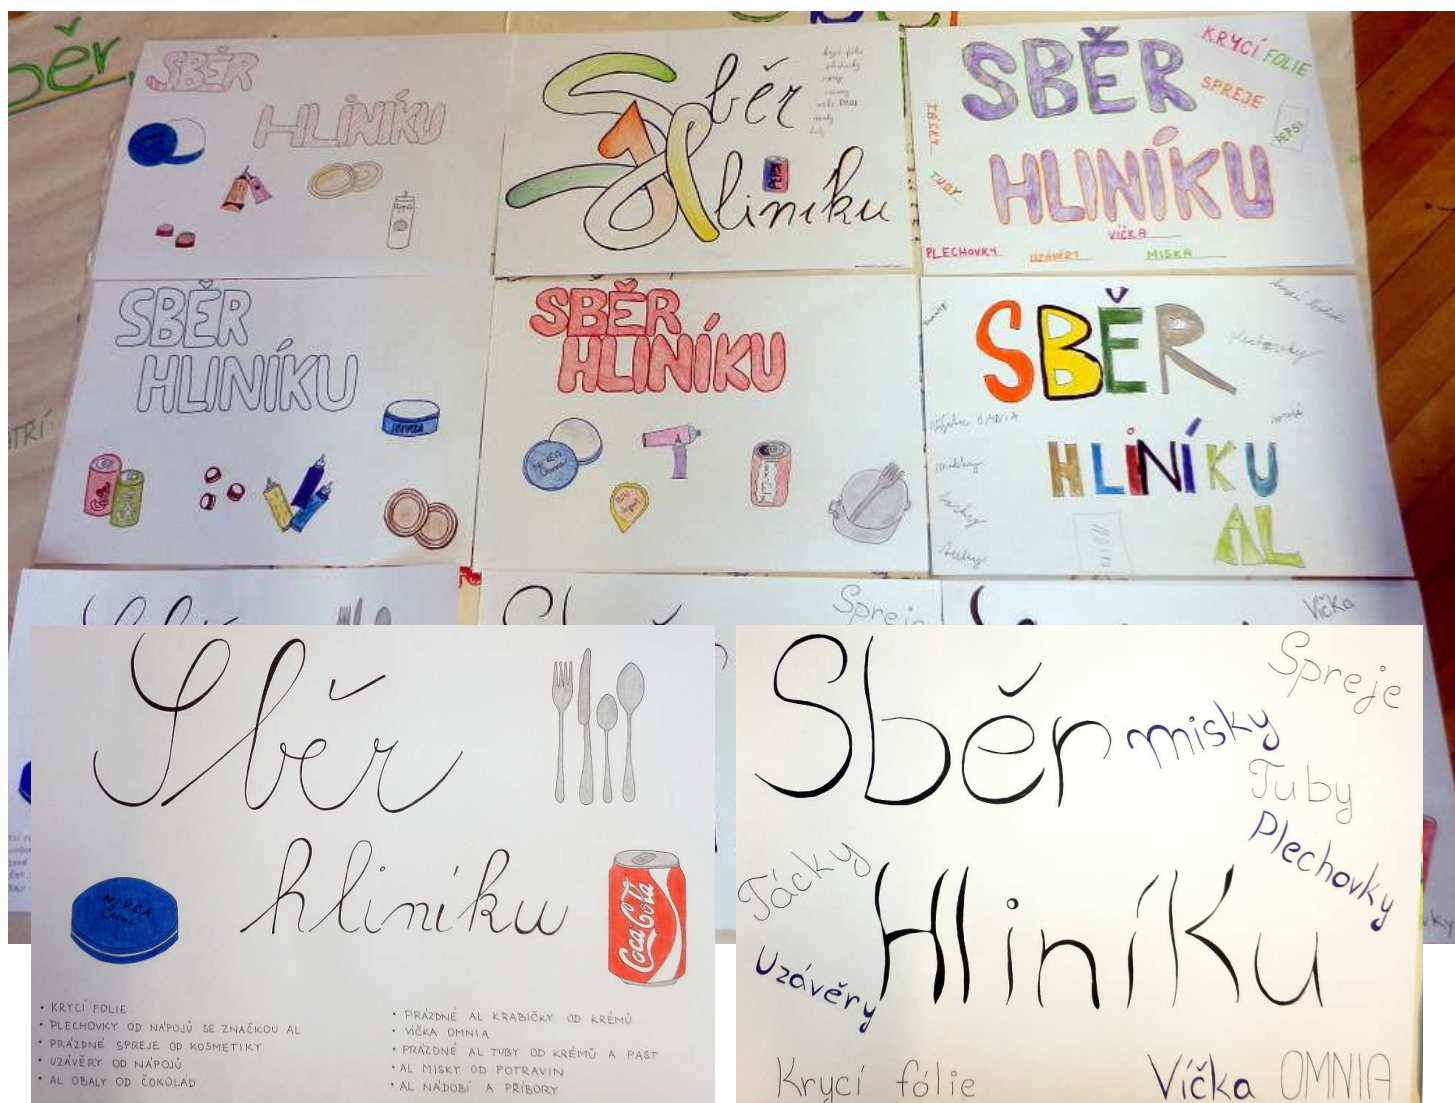 Sběr
SBĚR
HLINÍKU
Sběr
Hliníku
krycí fólie
PEPSI
SBĚR
HLINÍKU
KRYCÍ FOLIE
SPREJE
PEPSI
TÁCKY
TUBY
VÍČKA
PLECHOVKY
UZÁVĚRY
MISKA
SBĚR
HLINÍKU
NIVEA
SBĚR
HLINÍKU
NIVEA
Creme
SBĚR
HLINÍKU
AL
plechovky
OMNIA
misky
tácky
tuby
Spreje
Víčka
Sběr
hliníku
NIVEA
Creme
Coca Cola
• KRYCÍ FOLIE
• PLECHOVKY OD NÁPOJŮ SE ZNAČKOU AL
• PRÁZDNÉ SPREJE OD KOSMETIKY
• UZÁVĚRY OD NÁPOJŮ
• AL OBALY OD ČOKOLÁD
• PRÁZDNÉ AL KRABIČKY OD KRÉMŮ
• VÍČKA OMNIA
• PRÁZDNÉ AL TUBY OD KRÉMŮ A PAST
• AL MISKY OD POTRAVIN
• AL NÁDOBÍ A PŘÍBORY
Sběr
Hliníku
Spreje
misky
Tuby
Plechovky
Tácky
Uzávěry
Krycí fólie
Víčka OMNIA